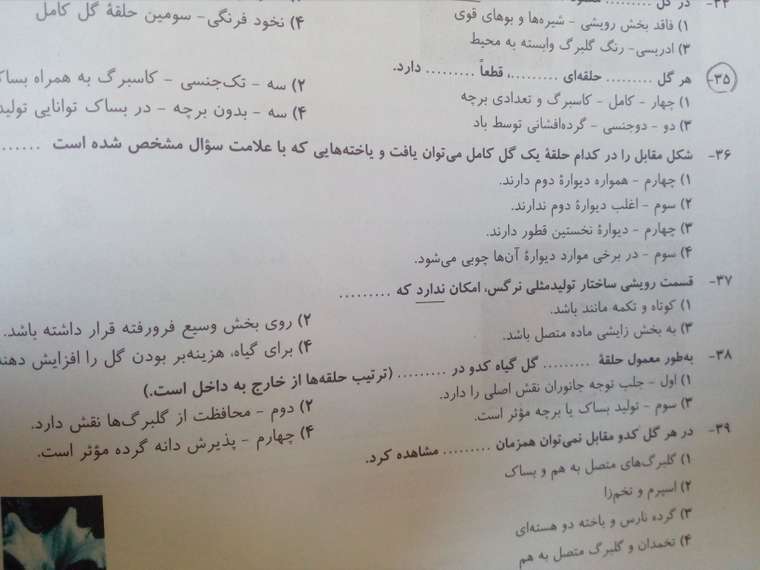 ۳۴- در گل ..........
۱) فاقد بخش رویشی - شیره‌ها و بوهای قوی
۳) ادریسی- رنگ گلبرگ وابسته به محیط
۴) نخود فرنگی- سومین حلقهٔ گل کامل
۳۵- هر گل .......... حلقه‌ای ..........، قطعاً .......... دارد.
۱) چهار - کامل - کاسبرگ و تعدادی برچه
۲) سه - تک‌جنسی - کاسبرگ به همراه بساک
۳) دو - دوجنسی - گرده‌افشانی توسط باد
۴) سه - بدون برچه - در بساک توانایی تولید
۳۶- شکل مقابل را در کدام حلقهٔ یک گل کامل می‌توان یافت و یاخته‌هایی که با علامت سؤال مشخص شده است ......
۱) چهارم - همواره دیوارهٔ دوم دارند.
۲) سوم - اغلب دیوارهٔ دوم ندارند.
۳) چهارم - دیوارهٔ نخستین قطور دارند.
۴) سوم - در برخی موارد دیوارهٔ آن‌ها چوبی می‌شود.
۳۷- قسمت رویشی ساختار تولیدمثلی نرگس، امکان ندارد که ..........
۱) کوتاه و تکمه مانند باشد.
۲) روی بخش وسیع فرورفته قرار داشته باشد.
۳) به بخش زایشی ماده متصل باشد.
۴) برای گیاه، هزینه‌بر بودن گل را افزایش دهند
۳۸- به‌طور معمول حلقهٔ .......... گل گیاه کدو در .......... (ترتیب حلقه‌ها از خارج به داخل است.)
۱) اول - جلب توجه جانوران نقش اصلی را دارد.
۲) دوم - محافظت از گلبرگ‌ها نقش دارد.
۳) سوم - تولید بساک یا برچه مؤثر است.
۴) چهارم - پذیرش دانه گرده مؤثر است.
۳۹- در هر گل کدو مقابل نمی‌توان همزمان .......... مشاهده کرد.
۱) گلبرگ‌های متصل به هم و بساک
۲) اسپرم و تخم‌زا
۳) گرده نارس و یاخته دو هسته‌ای
۴) تخمدان و گلبرگ متصل به هم